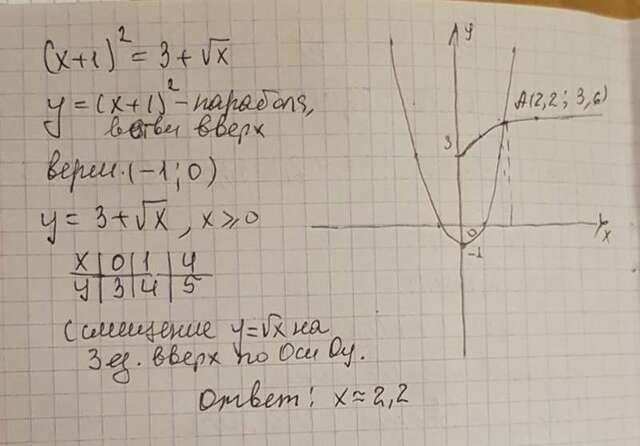 (x+1)² = 3 + √x
y = (x+1)² - парабола,
ветви вверх
верш. (-1; 0)
y = 3 + √x, x ≥ 0
x | 0 | 1 | 4
y | 3 | 4 | 5
Смещение y = √x на
3 ед. вверх по оси Oy.
Ответ: x ≈ 2,2
y
A(2,2; 3,6)
3
0
x
-1